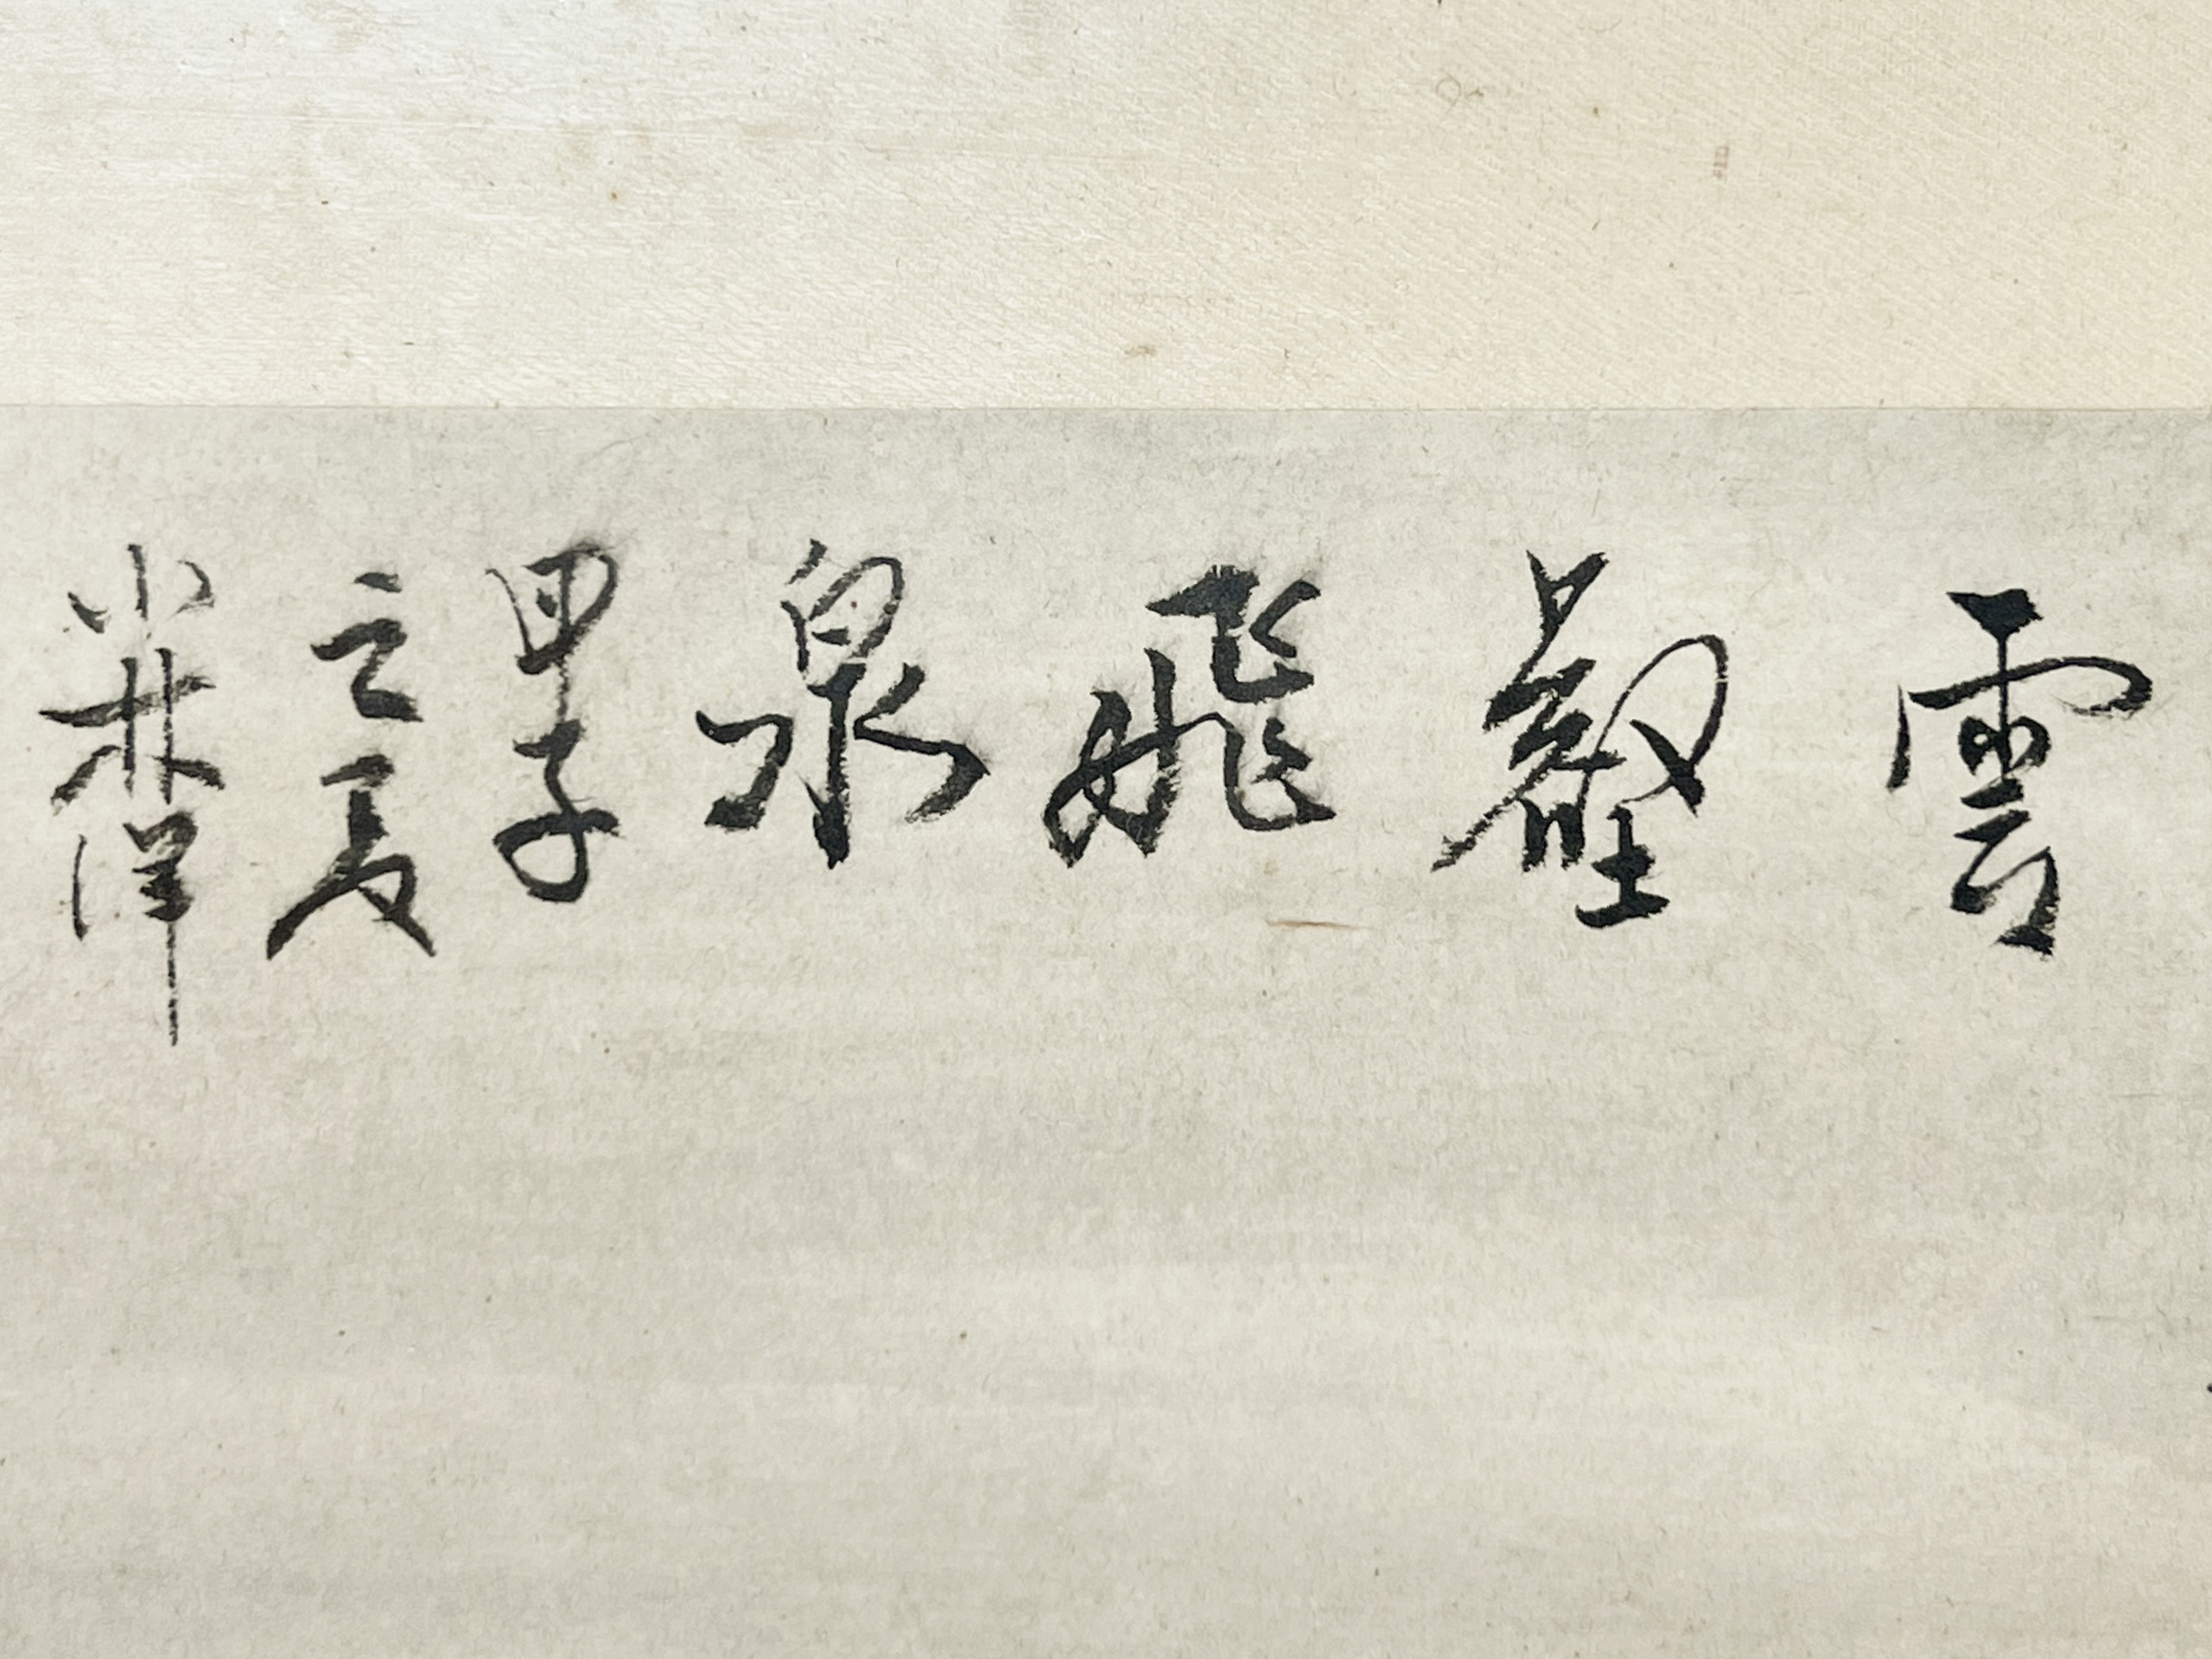 雲壑飛泉
甲子
之夏
小林